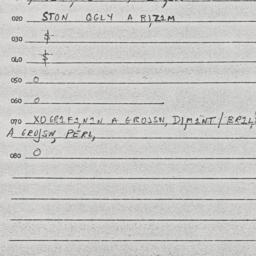 020 STON OGLY A RIZIM
030 $
040 $
050 O
060 O
070 XOGRIFININ A GROJSN, DIMINT/BRIL,
A GROJSN, PERL,
080 O